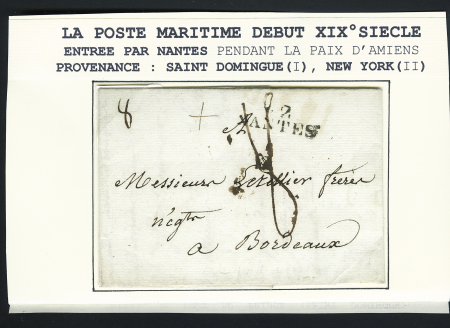 LA POSTE MARITIME DEBUT XIX°SIECLE
ENTREE PAR NANTES PENDANT LA PAIX D'AMIENS
PROVENANCE : SAINT DOMINGUE(I), NEW YORK(II)
8
A
2
NANTES
Messieurs frères
négts
a Bordeaux